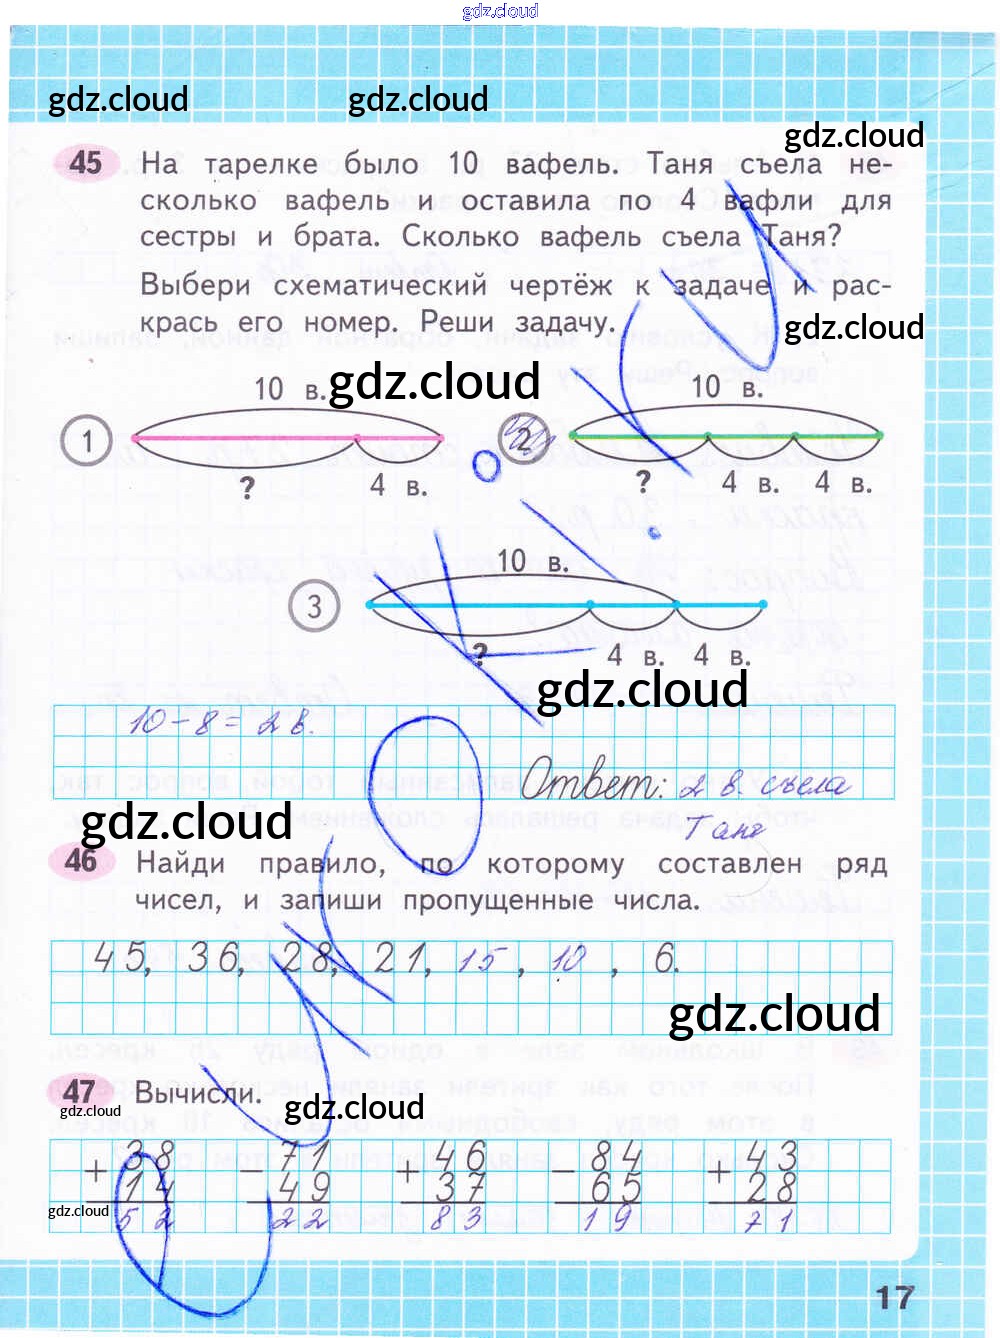 gdz.cloud
gdz.cloud gdz.cloud
gdz.cloud
45 На тарелке было 10 вафель. Таня съела не-
сколько вафель и оставила по 4 вафли для
сестры и брата. Сколько вафель съела Таня?
Выбери схематический чертёж к задаче и рас-
крась его номер. Реши задачу.
gdz.cloud
gdz.cloud
10 в. 10 в.
1 2
? 4 в. ? 4 в. 4 в.
10 в.
3
? 4 в. 4 в.
gdz.cloud
10-8= 2 в.
Ответ: 2 в. съела
Таня
gdz.cloud
46 Найди правило, по которому составлен ряд
чисел, и запиши пропущенные числа.
45, 36, 28, 21, 15, 10, 6.
gdz.cloud
47 Вычисли.
gdz.cloud gdz.cloud
+ 38 - 71 + 46 - 84 + 43
14 49 37 65 28
gdz.cloud 52 22 83 19 71
17